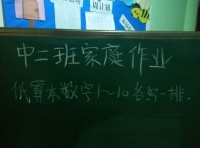 中二班家庭作业
伍算本数字1～10各写一排.